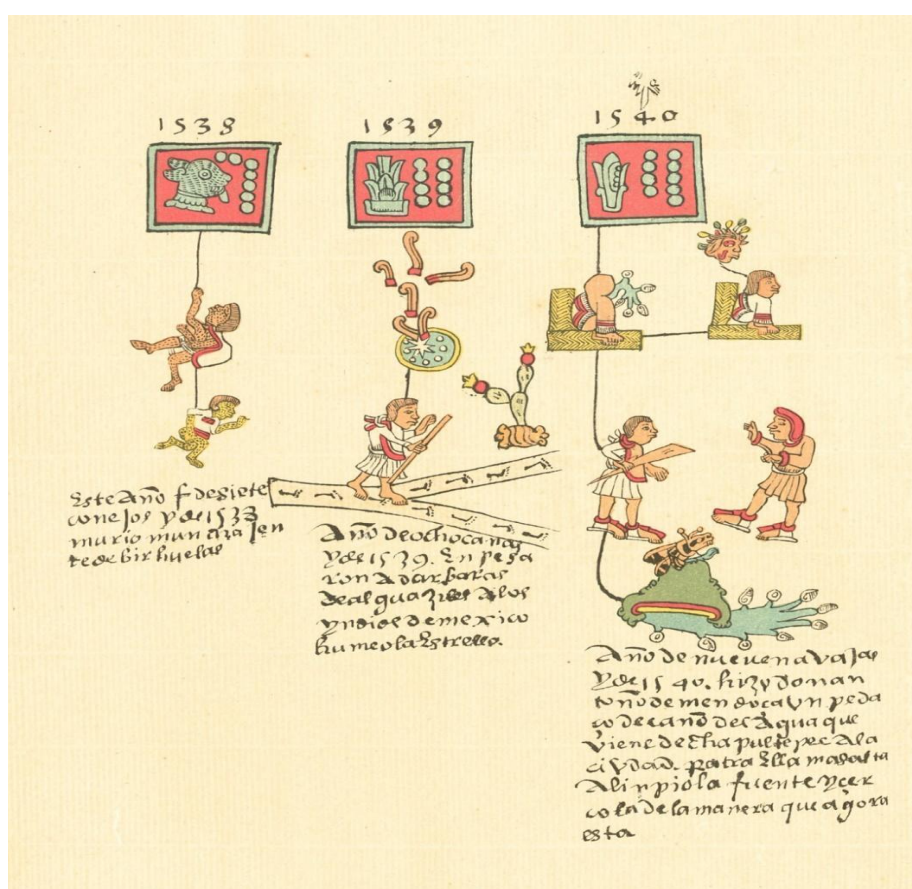 1538
1539
1540
Este Año f de siete
conejos y de 1538
murio mun cha jen
te de birhuelas
Año de ocho cañas
y de 1539. En pesa
ron A dar baras
de alguaziles A los
yndios de mexico
humeo la Estrella.
Año de nueve navajas
y de 1540. hizo don an
toño de mendoca Un peda
co de caño del Agua que
viene de Chapultepec A la
ciudad.
Alinpio la fuente y cer
co la de la manera que agora
esta